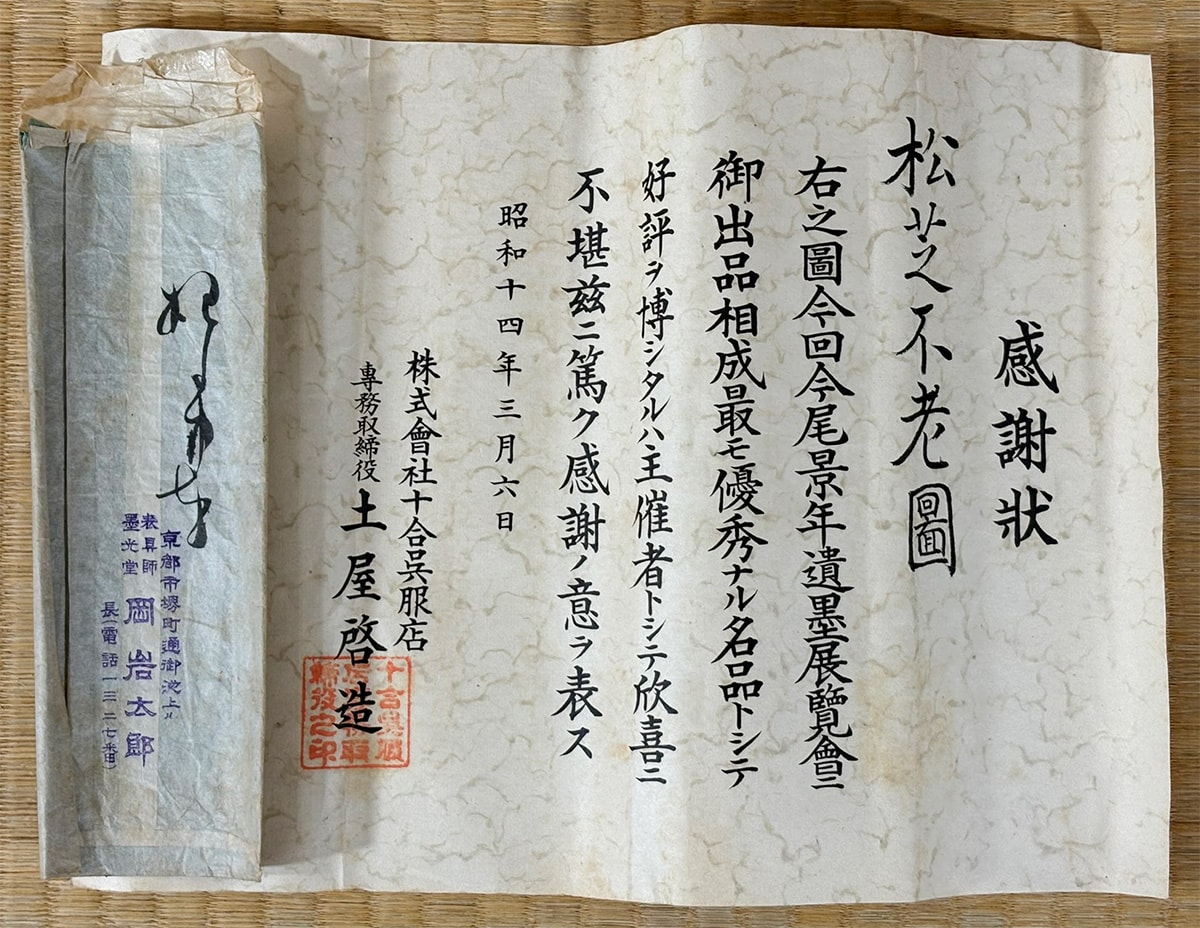 感謝狀
松芝不老圖
右之圖今回今尾景年遺墨展覽會ニ
御出品相成最モ優秀ナル名品トシテ
好評ヲ博シタルハ主催者トシテ欣喜ニ
不堪茲ニ篤ク感謝ノ意ヲ表ス
昭和十四年三月六日
株式會社十合呉服店
專務取締役 土屋啓造
十合呉服
締役之印
京都市堺町通御池上ル
表具師
墨光堂
岡岩太郎
長(電話一三二七番)